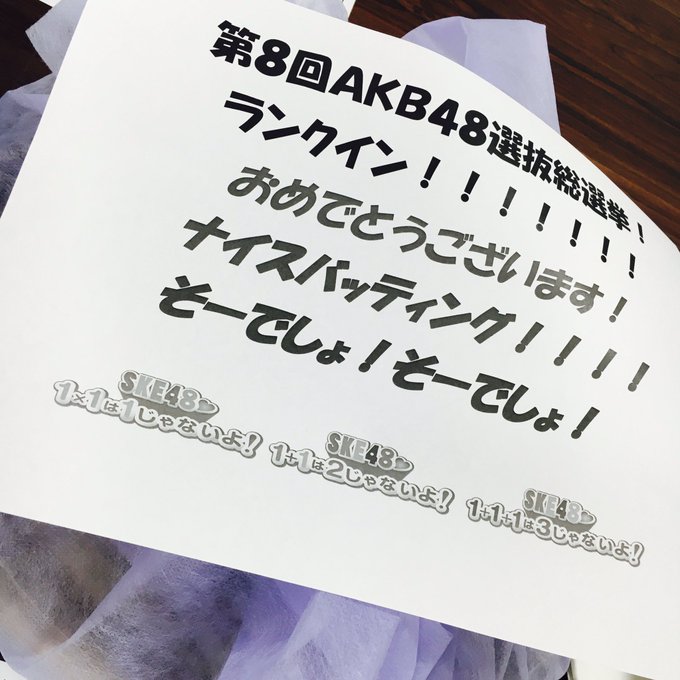 第8回AKB48選抜総選挙！
ランクイン！！！！！！！
おめでとうございます！
ナイスバッティング！！！！
そーでしょ！そーでしょ！
SKE48
1×1は1じゃないよ！
SKE48
1+1は2じゃないよ！
SKE48
1+1+1は3じゃないよ！